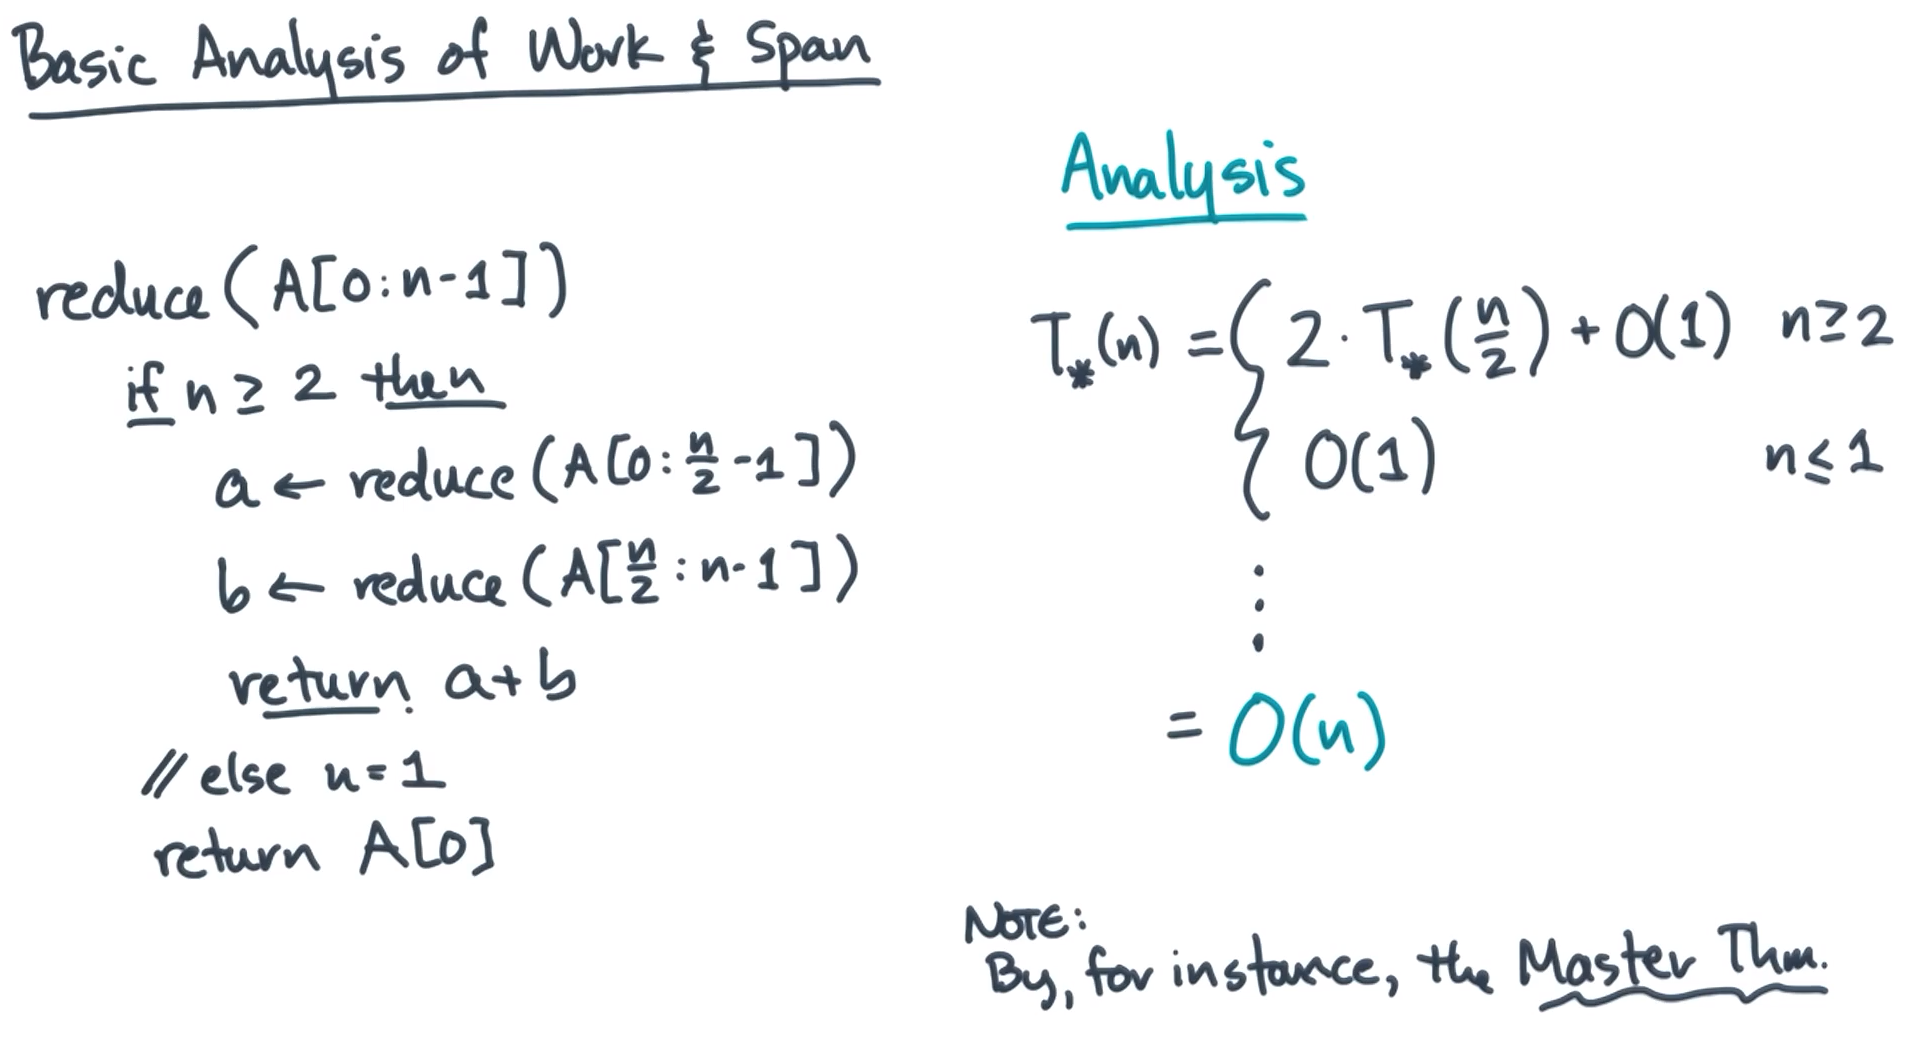 Basic Analysis of Work & Span
reduce (A[0:n-1])
if n ≥ 2 then
a ← reduce (A[0: n/2 -1])
b ← reduce (A[n/2 : n-1])
return a+b
// else n=1
return A[0]
Analysis
T*(n) = { 2 · T*(n/2) + O(1) n ≥ 2
O(1) n ≤ 1
⋮
= O(n)
NOTE:
By, for instance, the Master Thm.